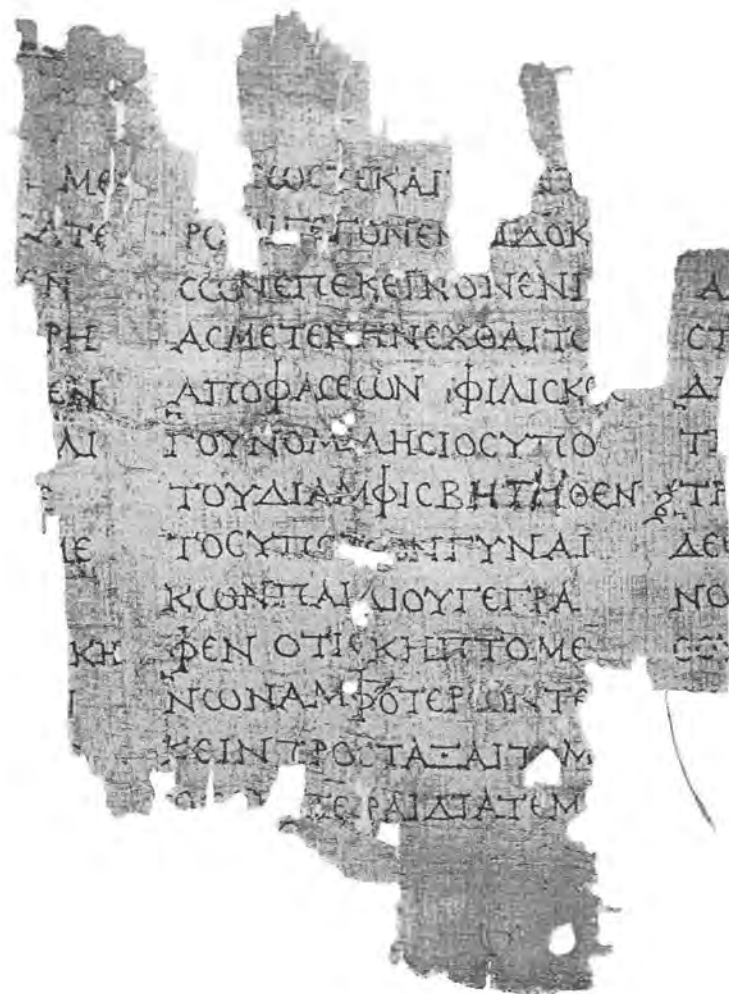 ΜΕ
ΑΤΕ
Ν
ΡΗ
ΕΝ
ΛΙ
ΜΕ
ΚΗ
Ι
ΕΩϹΔΕΚΑΙ
ΓΟΝΕΝ ΙΔΟΚ
ϹϹΩΝΕΠΕΚΕΙΝΟΝΕΝΙ
ΑϹΜΕΤΕΝΗΝΕΧΘΑΙΤΟ
ΑΠΟΦΑϹΕΩΝ ΦΙΛΙϹΚΟ
ΓΟΥΝΟΜΙΛΗϹΙΟϹΥΠΟ
ΤΟΥΔΙΑΜΦΙϹΒΗΤΗΘΕΝ
ΤΟϹΥΠΟΤΩΝΓΥΝΑΙ
ΚΩΝΠΑΙΔΙΟΥΓΕΓΡΑ
ΦΕΝ ΟΤΙϹΚΗΠΤΟΜΕ
ΝΩΝΑΜΦΟΤΕΡΩΝΤΕ
ΚΕΙΝΠΡΟϹΤΑΞΑΙΤΟΜ
ΕΡΑΙΔΙΑΤΕΜ
Α
ϹΤ
Δ
Τ
ΤΡ
ΔΕ
ΝΟ
ϹΟΥ